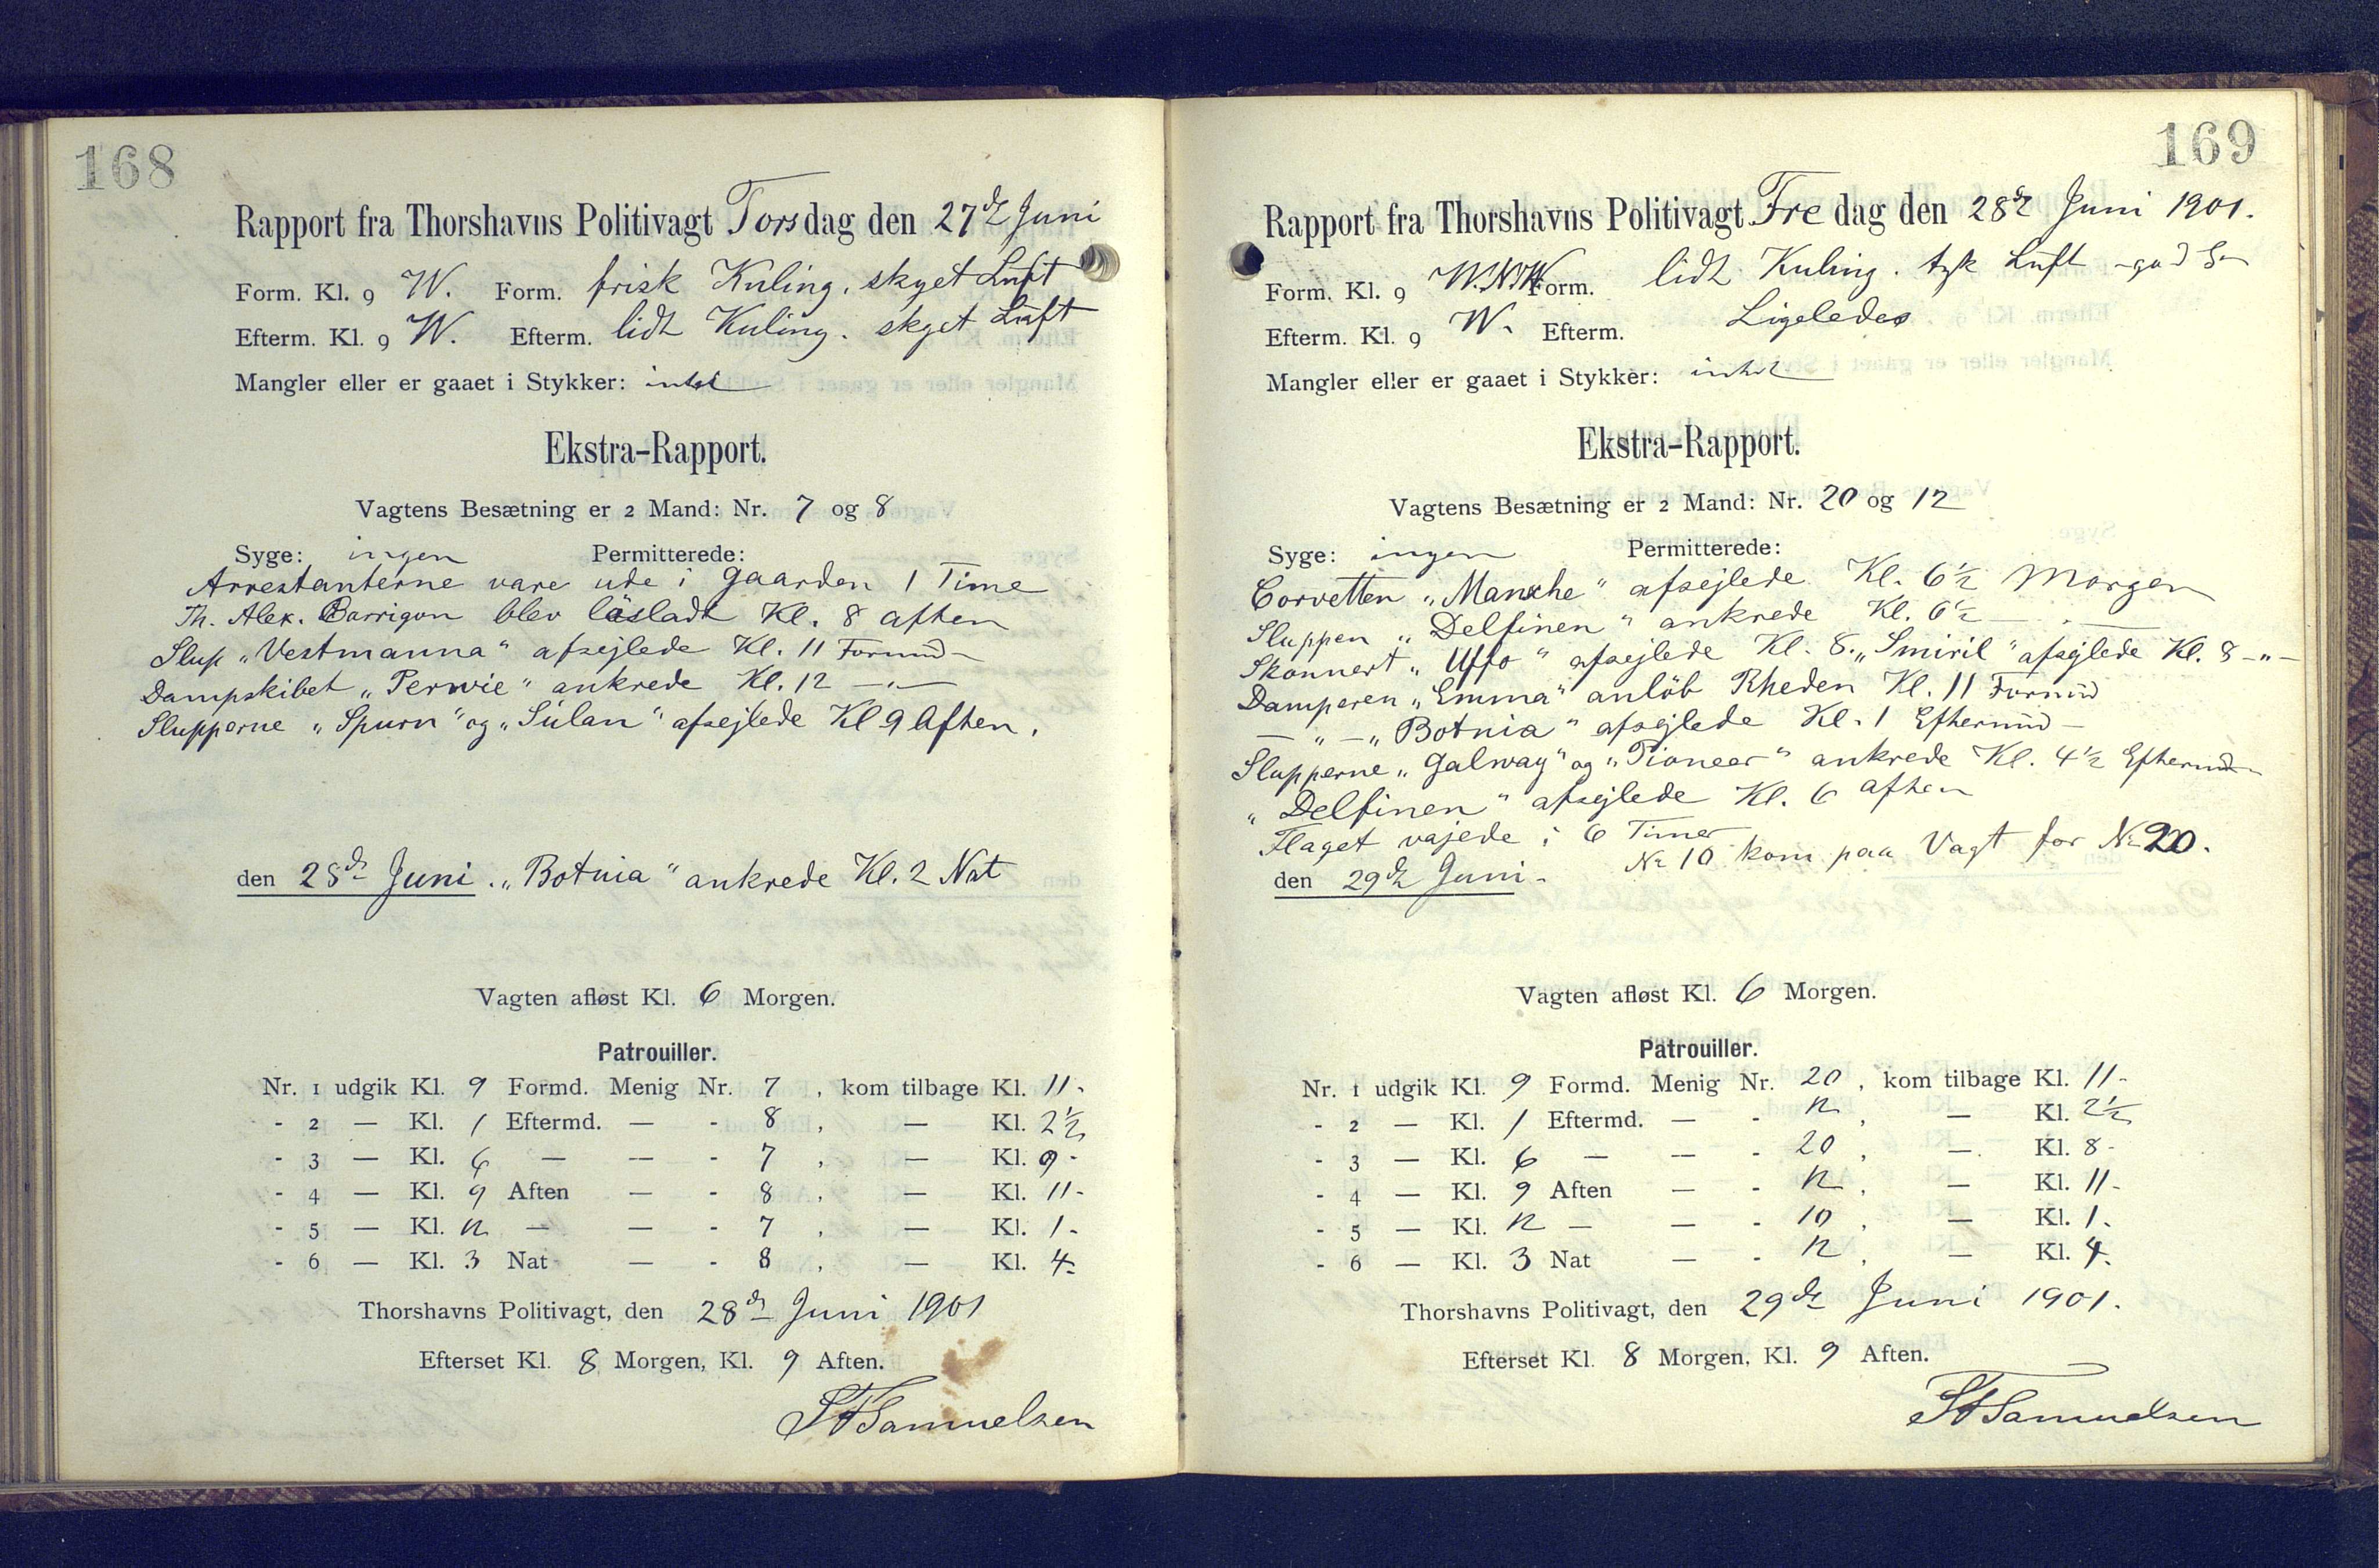 168
Rapport fra Thorshavns Politivagt Torsdag den 27de Juni
Form. Kl. 9 W. Form. frisk Kuling. skyet Luft
Efterm. Kl. 9 W. Efterm. lidt Kuling. skyet Luft
Mangler eller er gaaet i Stykker: intet
Ekstra-Rapport.
Vagtens Besætning er 2 Mand: Nr. 7 og 8
Syge: ingen Permitterede:
Arrestanterne vare ude i Gaarden 1 Time
Th. Alex. Barrigon blev løsladt Kl. 8 Aften
Slup „Vestmanna“ afsejlede Kl. 11 Formd
Dampskibet „Perwie“ ankrede Kl. 12 — „ —
Slupperne „Spurn“ og „Súlan“ afsejlede Kl 9 Aften.
den 28de Juni. „Botnia“ ankrede Kl. 2 Nat
Vagten afløst Kl. 6 Morgen.
Patrouiller.
Nr. 1 udgik Kl. 9 Formd. Menig Nr. 7, kom tilbage Kl. 11-
- 2 — Kl. 1 Eftermd. — - 8, — Kl. 2½
- 3 — Kl. 6 — — - 7, — Kl. 9-
- 4 — Kl. 9 Aften — - 8, — Kl. 11-
- 5 — Kl. 12 — — - 7, — Kl. 1-
- 6 — Kl. 3 Nat — - 8, — Kl. 4-
Thorshavns Politivagt, den 28de Juni 1901
Efterset Kl. 8 Morgen, Kl. 9 Aften.
Samuelsen
169
Rapport fra Thorshavns Politivagt Fredag den 28de Juni 1901.
Form. Kl. 9 W.N.W. Form. lidt Kuling. tyk Luft
Efterm. Kl. 9 W. Efterm. Ligeledes
Mangler eller er gaaet i Stykker: intet
Ekstra-Rapport.
Vagtens Besætning er 2 Mand: Nr. 20 og 12
Syge: ingen Permitterede:
Corvetten „Manche“ afsejlede Kl. 6½ Morgen
Sluppen „Delfinen“ ankrede Kl. 6½ — „ —
Skonnert „Uffo“ afsejlede Kl. 8. „Smiril“ afsejlede Kl. 8 — „ —
Damperen „Emma“ anløb Rheden Kl. 11 Formd
— „ — „Botnia“ afsejlede Kl. 1 Eftermd —
Slupperne „Galway“ og „Pioneer“ ankrede Kl. 4½ Eftermd
„Delfinen“ afsejlede Kl. 6 Aften
Flaget vajede i 6 Timer
den 29de Juni. Nr 10 kom paa Vagt for Nr 20.
Vagten afløst Kl. 6 Morgen.
Patrouiller.
Nr. 1 udgik Kl. 9 Formd. Menig Nr. 20, kom tilbage Kl. 11-
- 2 — Kl. 1 Eftermd. — - 12, — Kl. 2½
- 3 — Kl. 6 — — - 20, — Kl. 8-
- 4 — Kl. 9 Aften — - 12, — Kl. 11-
- 5 — Kl. 12 — — - 10, — Kl. 1.
- 6 — Kl. 3 Nat — - 12, — Kl. 4.
Thorshavns Politivagt, den 29de Juni 1901.
Efterset Kl. 8 Morgen, Kl. 9 Aften.
Samuelsen